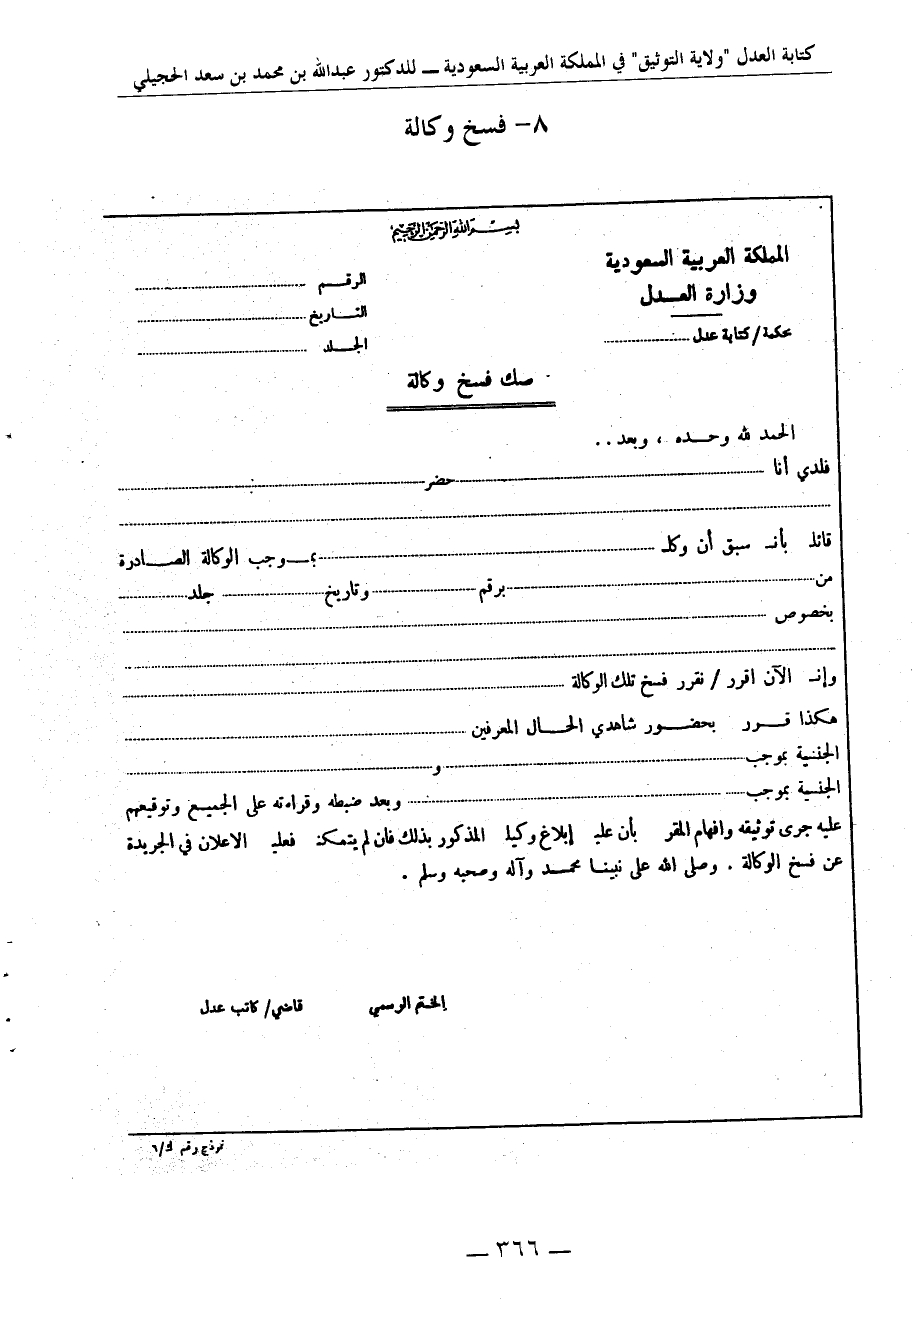 كتابة العدل "ولاية التوثيق" في المملكة العربية السعودية ــ للدكتور عبدالله بن محمد بن سعد الحجيلي
٨- فسخ وكالة
بسم الله الرحمن الرحيم
المملكة العربية السعودية
وزارة العدل
محكمة/كتابة عدل
الرقم
التاريخ
الجلد
صك فسخ وكالة
الحمد لله وحده ، وبعد . .
فلدي أنا حضر
قائلـ بأنـ سبق أن وكلـ بموجب الوكالة الصادرة
من برقم وتاريخ جلد
بخصوص
وإنـ الآن اقرر / نقرر فسخ تلك الوكالة
هكذا قرر بحضور شاهدي الحال المعرفين
الجنسية بموجب و
الجنسية بموجب وبعد ضبطه وقراءته على الجميع وتوقيعهم
عليه جرى توثيقه وافهام المقر بأن عليـ إبلاغ وكيلـ المذكور بذلك فان لم يتمكنـ فعليـ الاعلان في الجريدة
عن فسخ الوكالة . وصلى الله على نبينا محمد وآله وصحبه وسلم .
الختم الرسمي قاضي/كاتب عدل
نموذج رقم ك/٦
ــ ٣٦٦ ــ